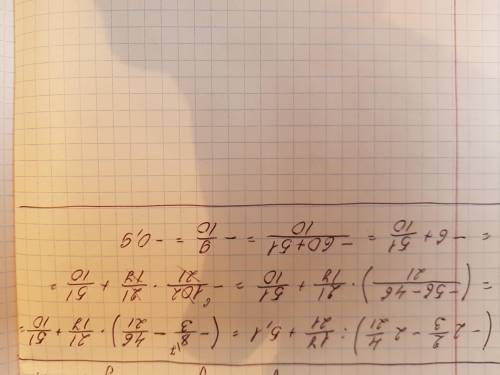 (- 2 2/3 - 2 4/21) : 17/21 + 5,1 = (- 8/3 ⁷ - 46/21) · 21/17 + 51/10 =
= (- 56 - 46 / 21) · 21/17 + 51/10 = - 102/21 ⁶ · 21/17 + 51/10 =
= - 6 + 51/10 = - 60 + 51 / 10 = - 9/10 = - 0,9